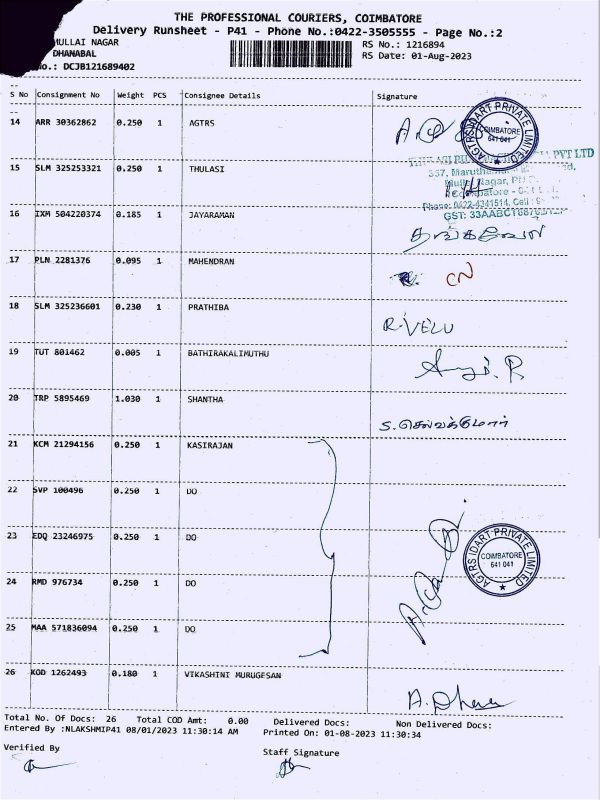 THE PROFESSIONAL COURIERS, COIMBATORE
Delivery Runsheet - P41 - Phone No.:0422-3505555 - Page No.:2
MULLAI NAGAR RS No.: 1216894
DHANABAL RS Date: 01-Aug-2023
No.: DCJB121689402
S No Consignment No Weight PCS Consignee Details Signature
14 ARR 30362862 0.250 1 AGTRS
AGTRS IDART PRIVATE LIMITED
COIMBATORE
641 041
15 SLM 325253321 0.250 1 THULASI
PVT LTD
Phone: 0422-4341514, Cell :
16 IXM 504220374 0.185 1 JAYARAMAN
தங்கவேல்
17 PLN 2281376 0.095 1 MAHENDRAN
CN
18 SLM 325236601 0.230 1 PRATHIBA
R.VELU
19 TUT 801462 0.005 1 BATHIRAKALIMUTHU
20 TRP 5895469 1.030 1 SHANTHA
S.செல்வக்குமார்
21 KCM 21294156 0.250 1 KASIRAJAN
22 SVP 100496 0.250 1 DO
23 EDQ 23246975 0.250 1 DO
AGTRS IDART PRIVATE LIMITED
COIMBATORE
641 041
24 RMD 976734 0.250 1 DO
25 MAA 571836094 0.250 1 DO
26 KOD 1262493 0.180 1 VIKASHINI MURUGESAN
Total No. Of Docs: 26 Total COD Amt: 0.00 Delivered Docs: Non Delivered Docs:
Entered By :NLAKSHMIP41 08/01/2023 11:30:14 AM Printed On: 01-08-2023 11:30:34
Verified By Staff Signature